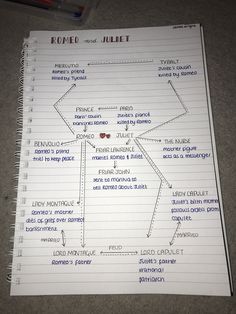 ROMEO and JULIET
MERCUTIO
Romeo's friend
killed by Tybalt
TYBALT
Juliet's cousin
killed by Romeo
PRINCE
Paris' cousin
banishes Romeo
PARIS
Juliet's fiancé
killed by Romeo
ROMEO
JULIET
BENVOLIO
Romeo's friend
tries to keep peace
FRIAR LAWRENCE
marries Romeo & Juliet
THE NURSE
mother figure
acts as a messenger
FRIAR JOHN
sent to mantua to
tell Romeo about Juliet
LADY MONTAGUE
Romeo's mother
dies of grief over Romeo
banishment
LADY CAPULET
Juliet's birth mother
follows orders from
Capulet
MARRIED
MARRIED
FEUD
LORD MONTAGUE
Romeo's father
LORD CAPULET
Juliet's father
irrational
patriarch